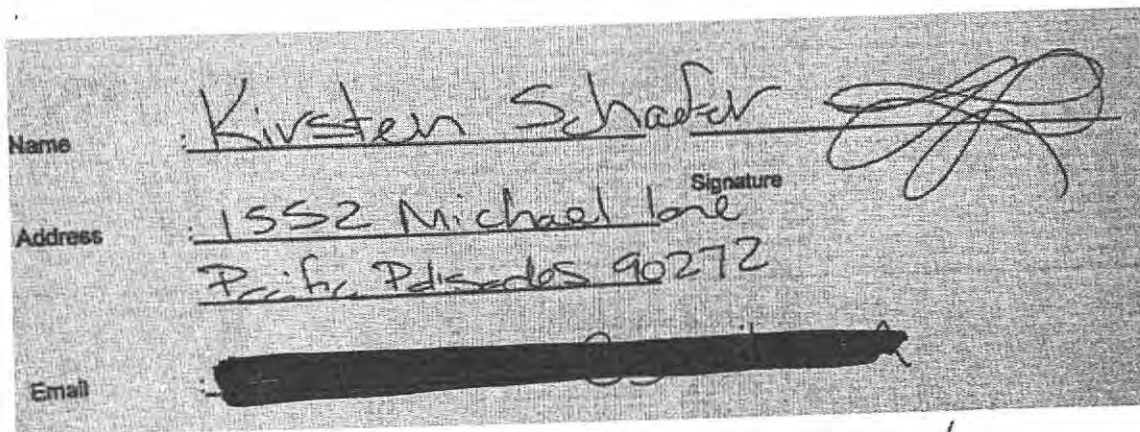 Name : Kirsten Schaefer
Signature
Address : 1552 Michael lane
Pacific Palisades 90272
Email :